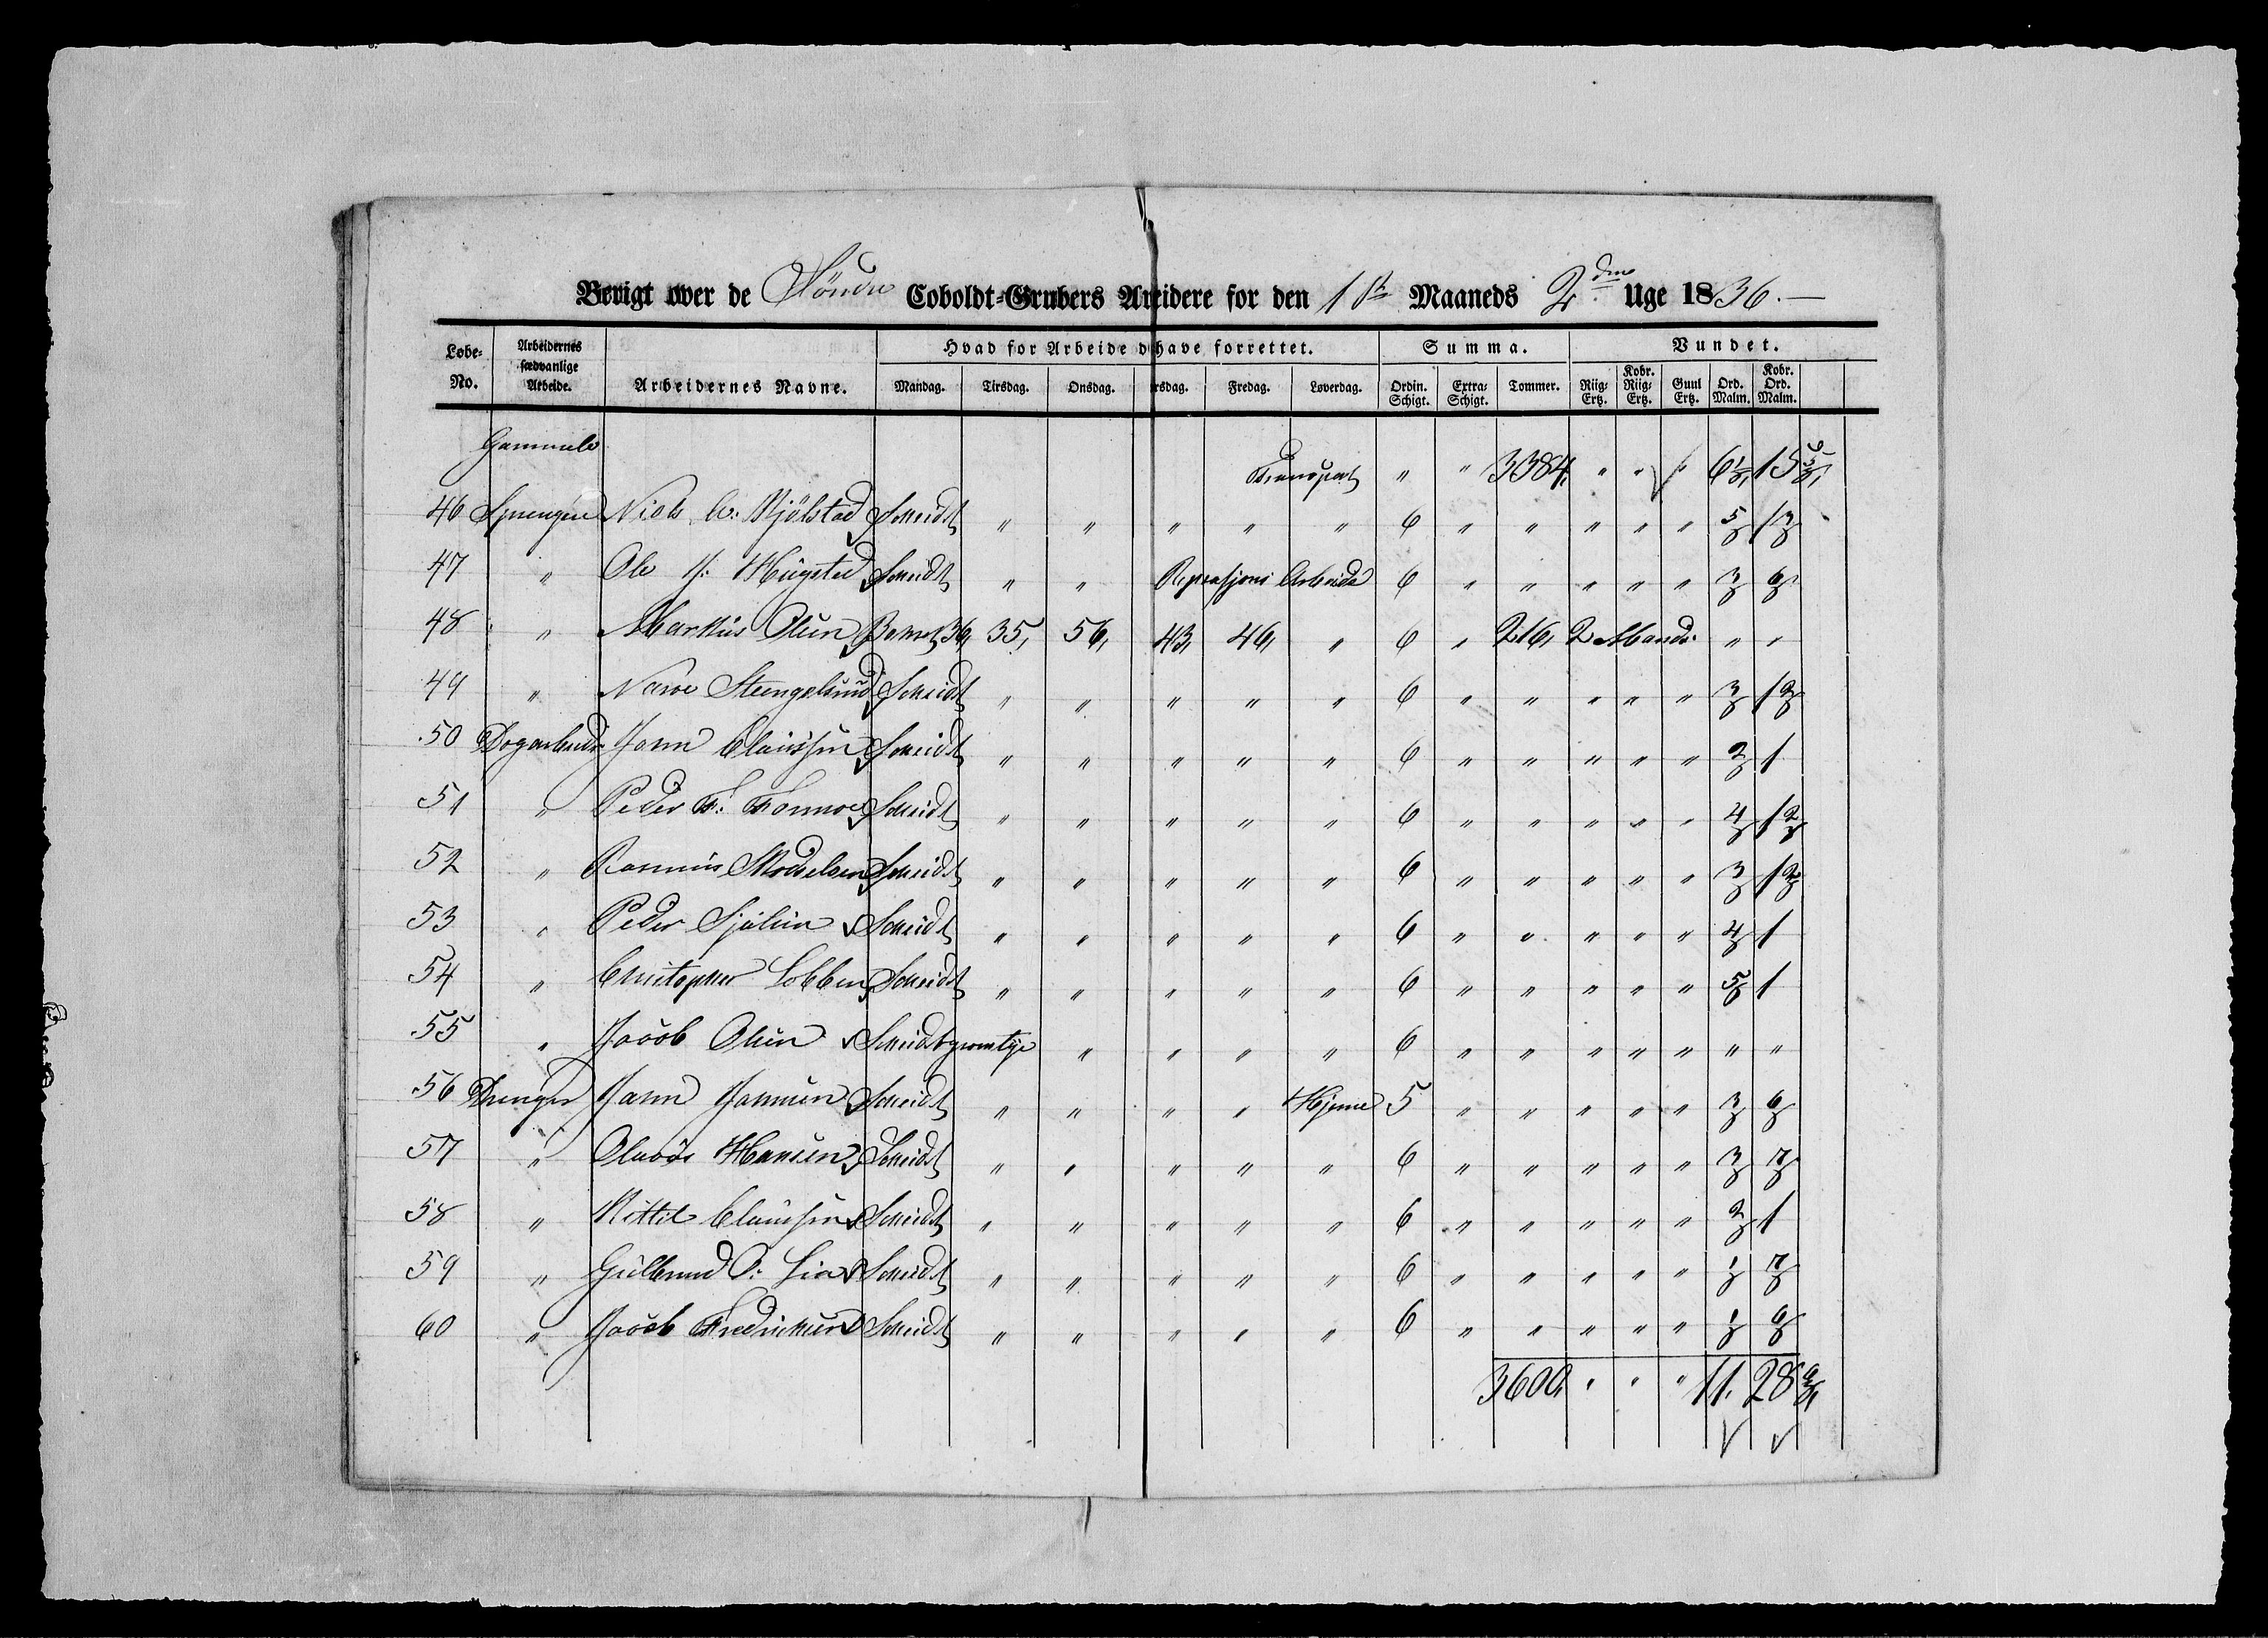 Berigt over de Söndre Coboldt-Grubers Arbeidere for den 1ste Maaneds 2den Uge 1836.—
Løbe-No. Arbeidernes sædvanlige Arbeide. Arbeidernes Navne. Hvad for Arbeide de have forrettet. Summa. Vundet.
Mandag. Tirsdag. Onsdag. rsdag. Fredag. Løverdag. Ordin. Schigt. Extra-Schigt. Tommer. Riig-Ertz. Kobr. Riig-Ertz. Gunl Ertz. Ord. Malm. Kobr. Ord. Malm.
Gammele
Transport " " 3384, " " " 6 1/8, 15 5/8,
46 Sprengere Niels C: Mjölstad Scheidt " " " " " 6 " " " " " 5/8 1 3/8
47 " Ole J: Hugsted Scheidt " " Reprasjons Arbeide 6 " " " " " 3/8 6/8
48 " Markus Olsen Boret 36, 35, 56, 43, 46, " 6 " 216, 2 Mands " "
49 " Narve Steengelsrud Scheidt " " " " " 6 " " " " " 3/8 1 2/8
50 Dagarbeider Hans Claussen Scheidt " " " " " 6 " " " " " 2/8 1
51 " Peder F: Fonnoe Scheidt " " " " " 6 " " " " " 4/8 1 2/8
52 " Rasmus Skodselsen Scheidt " " " " " 6 " " " " " 3/8 1 2/8
53 " Peder Sjölsen Scheidt " " " " " 6 " " " " " 4/8 1
54 " Christopher Lobben Scheidt " " " " " 6 " " " " " 5/8 1
55 " Jacob Olsen Scheidt " " " " 6 " " " " " " "
56 Drenger Hans Hansen Scheidt " " " " Hjeme 5 " " " " " 3/8 6/8
57 " Olaves Hansen Scheidt " " " " " 6 " " " " " 3/8 7/8
58 " Kittil Claussen Scheidt " " " " " 6 " " " " " 2/8 1
59 " Gulbrand O: Lia Scheidt " " " " " 6 " " " " " 1/8 7/8
60 " Jacob Fredriksen Scheidt " " " " " 6 " " " " " 1/8 6/8
3600, " " " 11, 28 6/8,